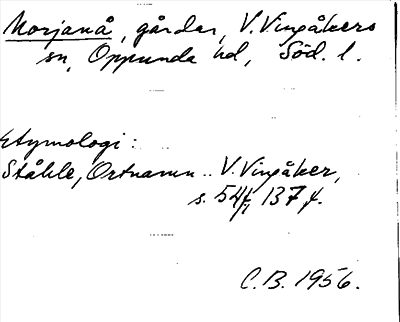 Morjanå, gårdar, V. Vingåkers
sn, Oppunda hd, Söd. l.
Etymologi:
Ståhle, Ortnamn .. V. Vingåker,
s. 54 f., 137 f.
C.B. 1956.